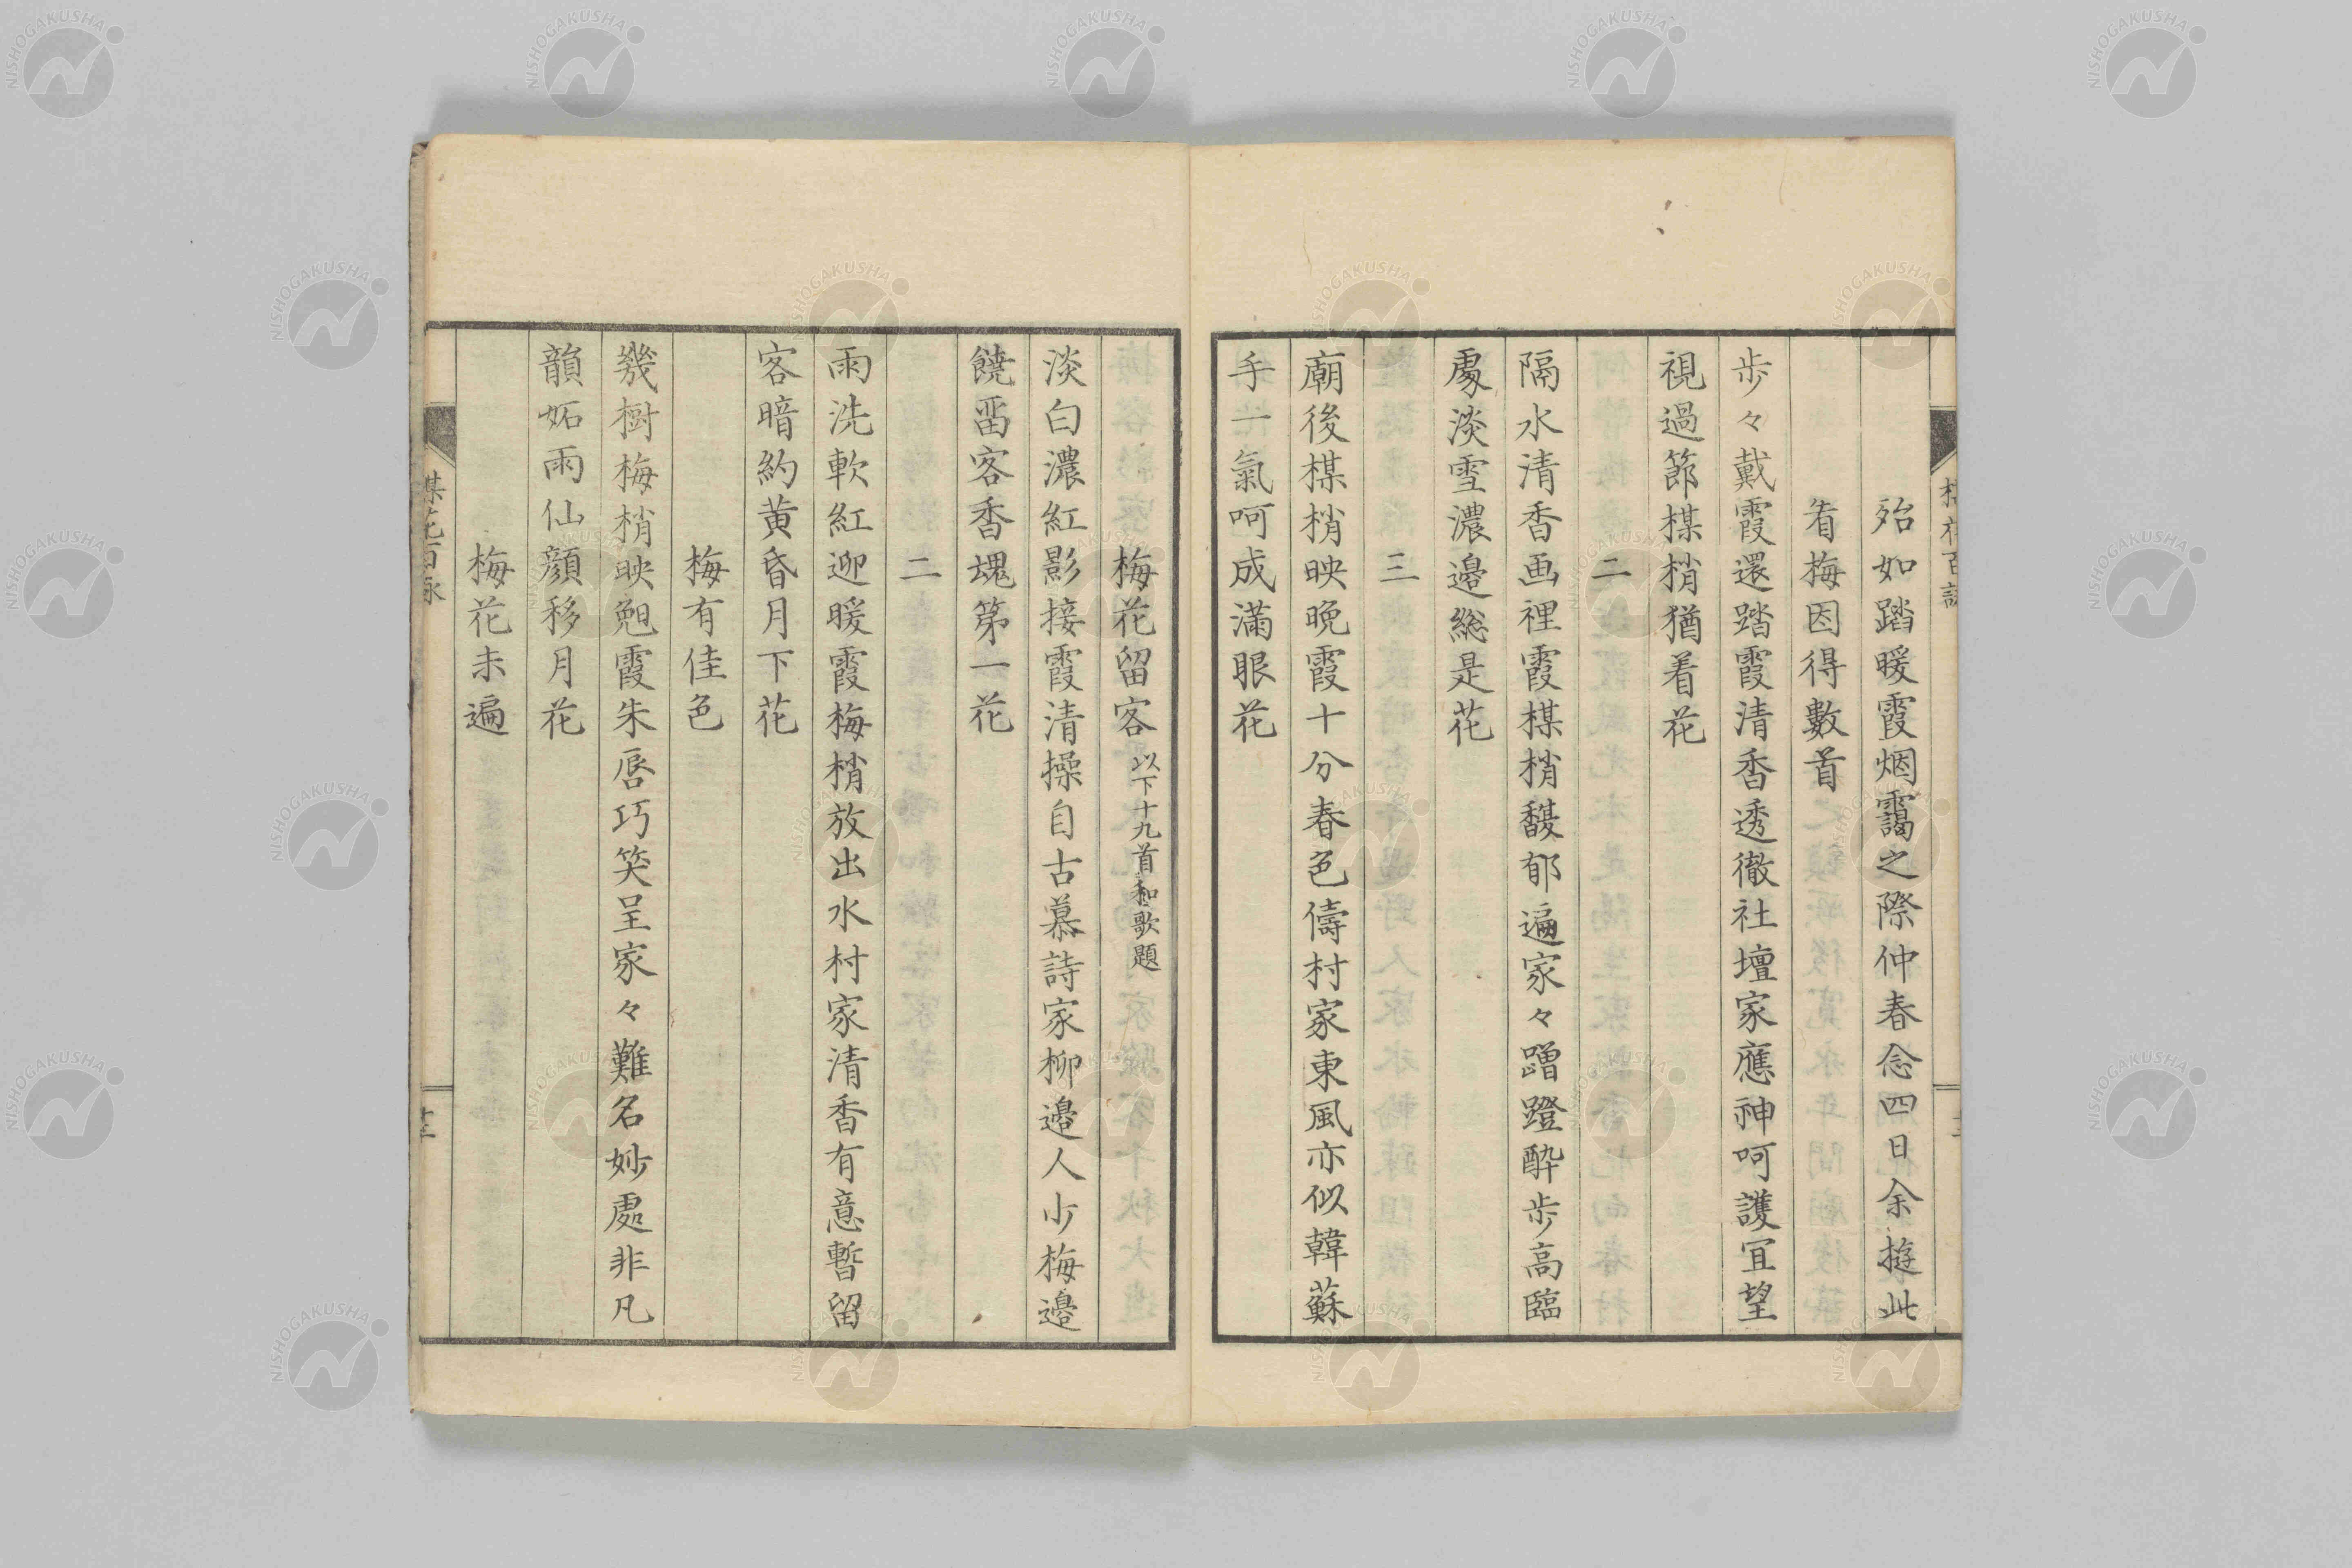 殆如踏暖霞烟靄之際仲春念四日余遊此
看梅因得數首
歩々戴霞還踏霞清香透徹社壇家應神呵護宜望
視過節楳梢猶着花
二
隔水清香画裡霞楳梢馥郁遍家々蹭蹬酔歩高臨
處淡雪濃邊総是花
三
廟後楳梢映晩霞十分春色儔村家東風亦似韓蘇
手一氣呵成滿眼花
梅花留客 以下十九首和歌題
淡白濃紅影接霞清操自古慕詩家柳邊人少梅邊
饒畱客香魂第一花
二
雨洗軟紅迎暖霞梅梢放出水村家清香有意暫留
客暗約黄昏月下花
梅有佳色
幾樹梅梢映曉霞朱唇巧笑呈家々難名妙處非凡
韻妬雨仙顔移月花
梅花未遍
楳花百詠
NISHOGAKUSHA